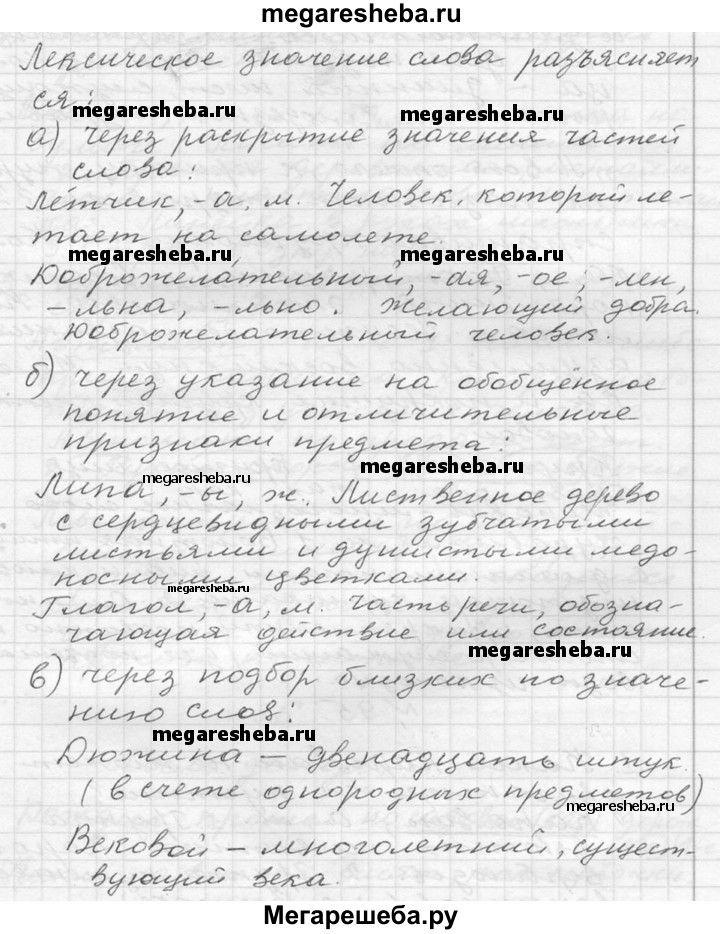 megaresheba.ru
Лексическое значение слова разъясняет
ся:
megaresheba.ru
megaresheba.ru
а) через раскрытие значения частей
слова:
Лётчик, -а, м. Человек, который ле-
тает на самолете.
megaresheba.ru
megaresheba.ru
Доброжелательный, -ая, -ое; -лен,
-льна, -льно. Желающий добра.
Доброжелательный человек.
б) через указание на обобщённое
понятие и отличительные
признаки предмета:
megaresheba.ru
megaresheba.ru
Липа, -ы, ж. Лиственное дерево
с сердцевидными зубчатыми
листьями и душистыми медо-
носными цветками.
megaresheba.ru
Глагол, -а, м. Часть речи, обозна-
чающая действие или состояние.
megaresheba.ru
в) через подбор близких по значе-
нию слов:
megaresheba.ru
Дюжина – двенадцать штук.
(в счете однородных предметов)
megaresheba.ru
Вековой – многолетний, сущест-
вующий века.
Мегарешеба.ру